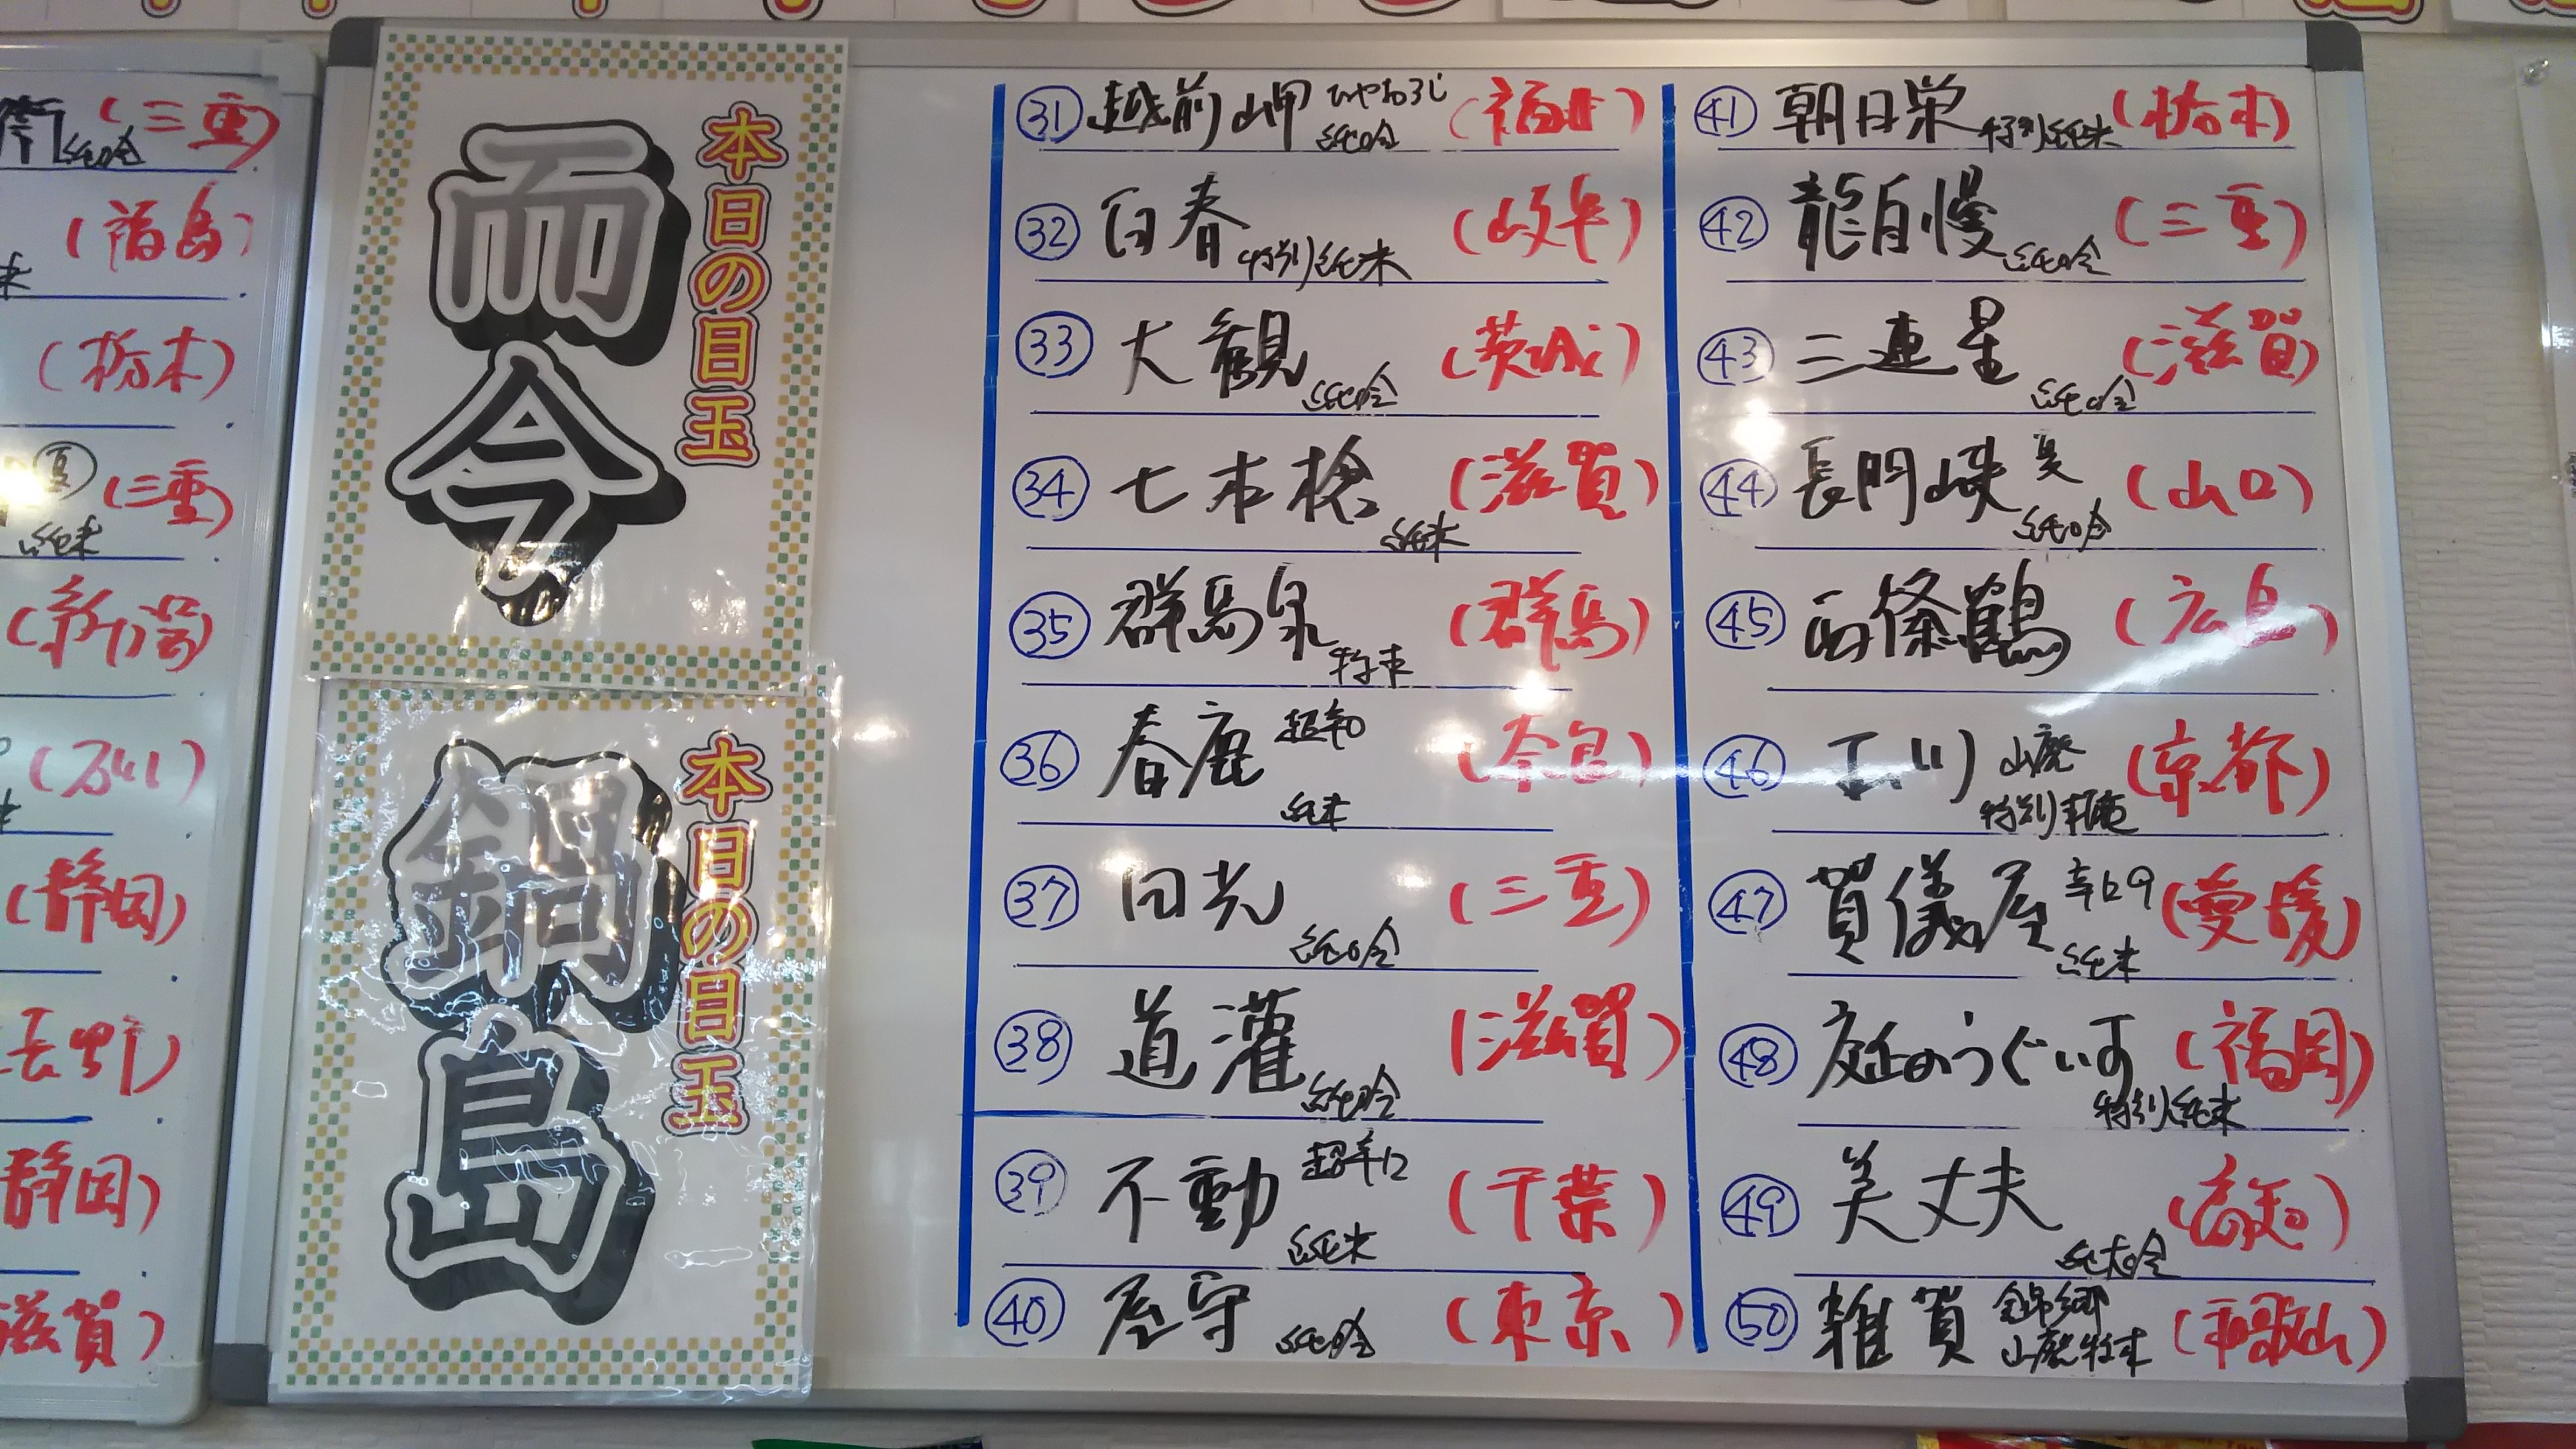 (三重)
純吟
(福島)
(栃木)
夏
(三重)
純米
(新潟)
(石川)
(静岡)
長野)
静岡)
滋賀)
本日の目玉
而今
本日の目玉
鍋島
㉛ 越前岬 ひやおろし 純吟 (福井)
㉜ 白春 特別純米 (岐阜)
㉝ 大観 純吟 (茨城)
㉞ 七本槍 純米 (滋賀)
㉟ 群馬泉 特本 (群馬)
㊱ 春鹿 超辛口 純米 (奈良)
㊲ 田光 純吟 (三重)
㊳ 道灌 純吟 (滋賀)
㊴ 不動 超辛口 純米 (千葉)
㊵ 屋守 純吟 (東京)
㊶ 朝日栄 特別純米 (栃木)
㊷ 龍自慢 純吟 (三重)
㊸ 三連星 純吟 (滋賀)
㊹ 長門峡 夏 純吟 (山口)
㊺ 西條鶴 (広島)
㊻ 玉川 山廃 特別本醸造 (京都)
㊼ 賀儀屋 辛口9 純米 (愛媛)
㊽ 庭のうぐいす 特別純米 (福岡)
㊾ 美丈夫 純大吟 (高知)
㊿ 雑賀 錦郷 山廃特本 (和歌山)